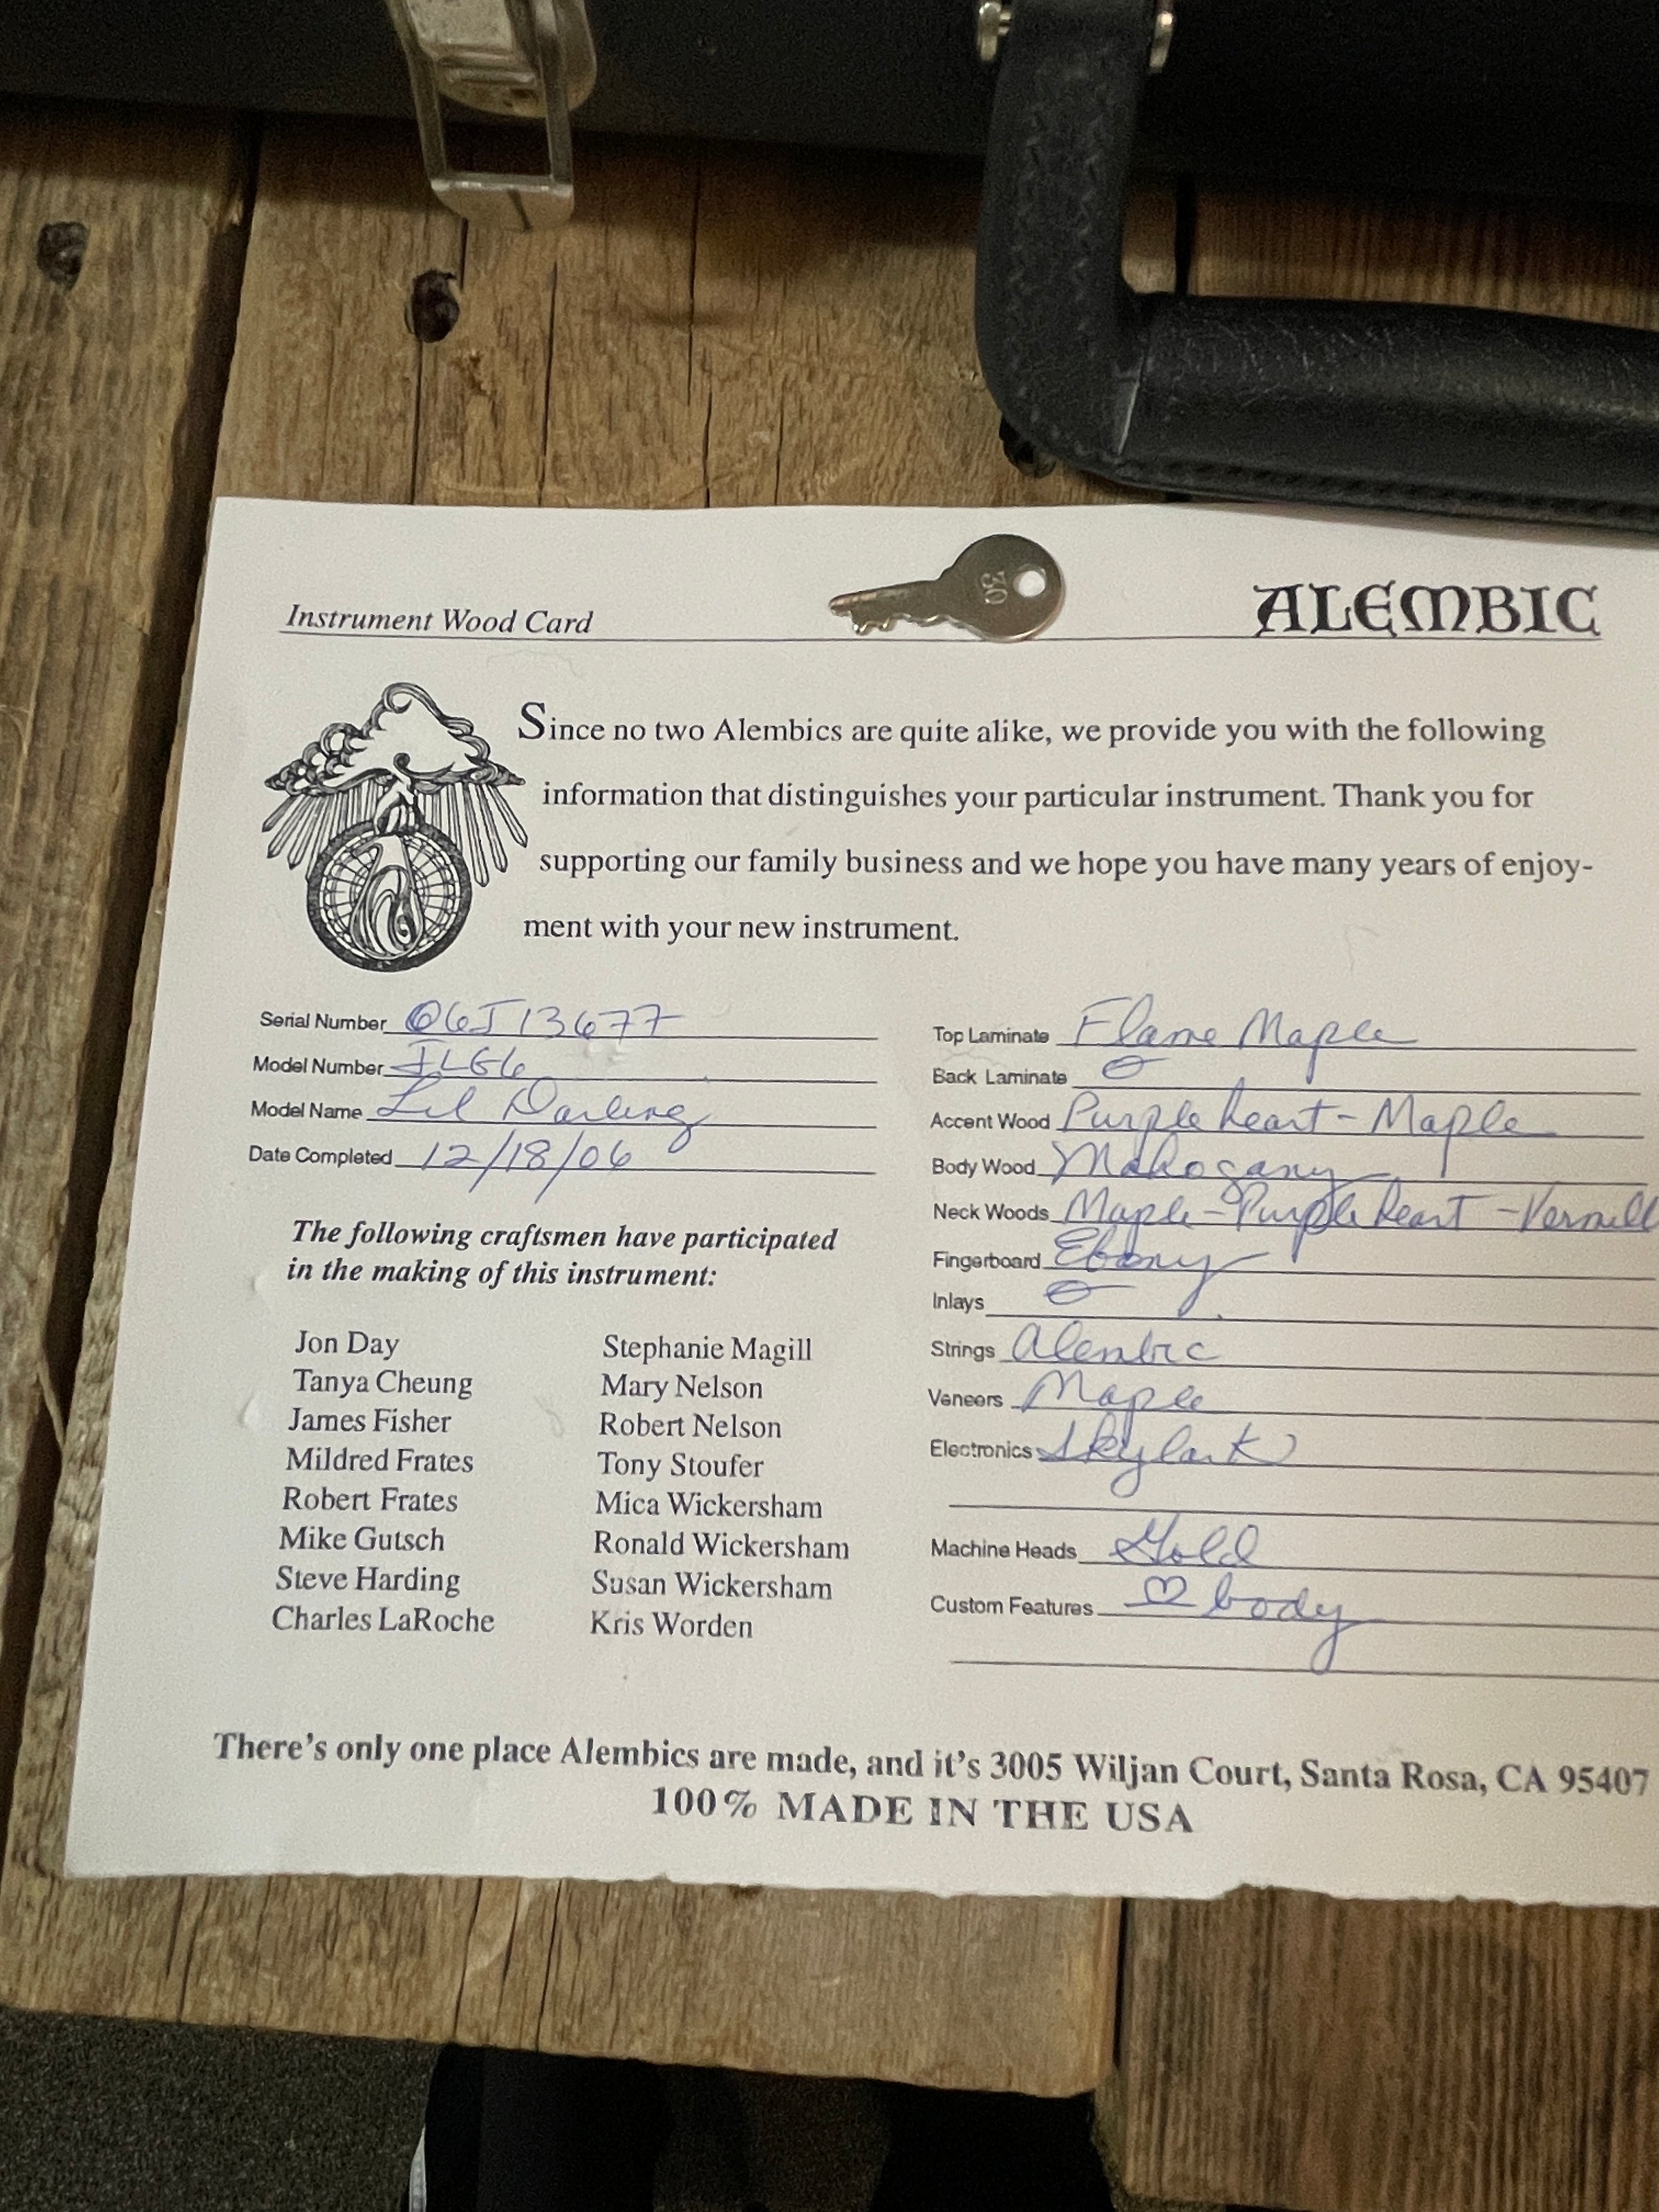 30
Instrument Wood Card
ALEMBIC
Since no two Alembics are quite alike, we provide you with the following
information that distinguishes your particular instrument. Thank you for
supporting our family business and we hope you have many years of enjoy-
ment with your new instrument.
Serial Number 06J13677
Model Number ILG6
Model Name Lil Darling
Date Completed 12/18/06
The following craftsmen have participated
in the making of this instrument:
Jon Day
Tanya Cheung
James Fisher
Mildred Frates
Robert Frates
Mike Gutsch
Steve Harding
Charles LaRoche
Stephanie Magill
Mary Nelson
Robert Nelson
Tony Stoufer
Mica Wickersham
Ronald Wickersham
Susan Wickersham
Kris Worden
Top Laminate Flame Maple
Back Laminate
Accent Wood Purpleheart - Maple
Body Wood Mahogany
Neck Woods Maple - Purpleheart -
Fingerboard Ebony
Inlays
Strings Alembic
Veneers Maple
Electronics Skylark
Machine Heads Gold
Custom Features ♡ body
There's only one place Alembics are made, and it's 3005 Wiljan Court, Santa Rosa, CA 95407
100% MADE IN THE USA